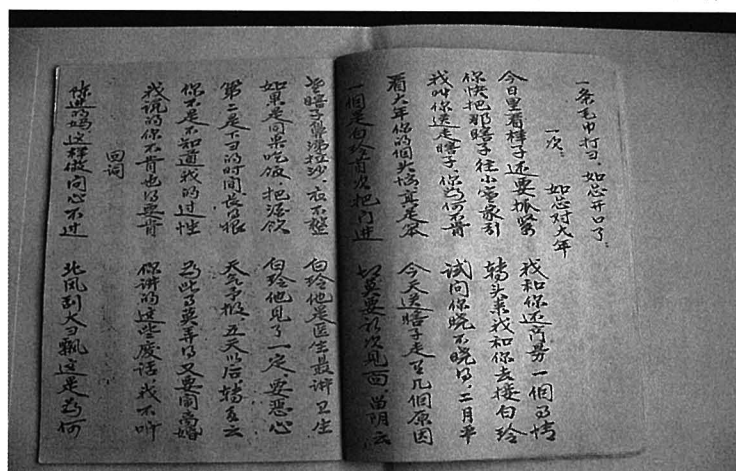 一条毛巾打彐,如总开口了:
一次: 如总对大年
今日里看样子还要抓紧 我和你还商另一個的情
你快把那瞎子往小童家引 转头来我和你去接白玲
我叫你送走瞎子你为何不肯 试问你晓不晓得,二月平
看大年你的個头情真是笨 今天送瞎子走有几個原因
一個是白玲首次把门进 切莫要初次见面,留阴云
瞎子鼻涕拉沙,衣不整 白玲他是医生最讲卫生
如果是同桌吃饭,把酒饮 白玲他见了一定要恶心
第二是下彐的时间长得很 天气予报,五天以后转多云
你不是不知道我的过性 为此得莫弄得又要闹离婚
我说的你不肯也得要肯 你讲的这些废话,我不听
回词
陈进的妈这样做问心不过 北风到大彐飘这是为何